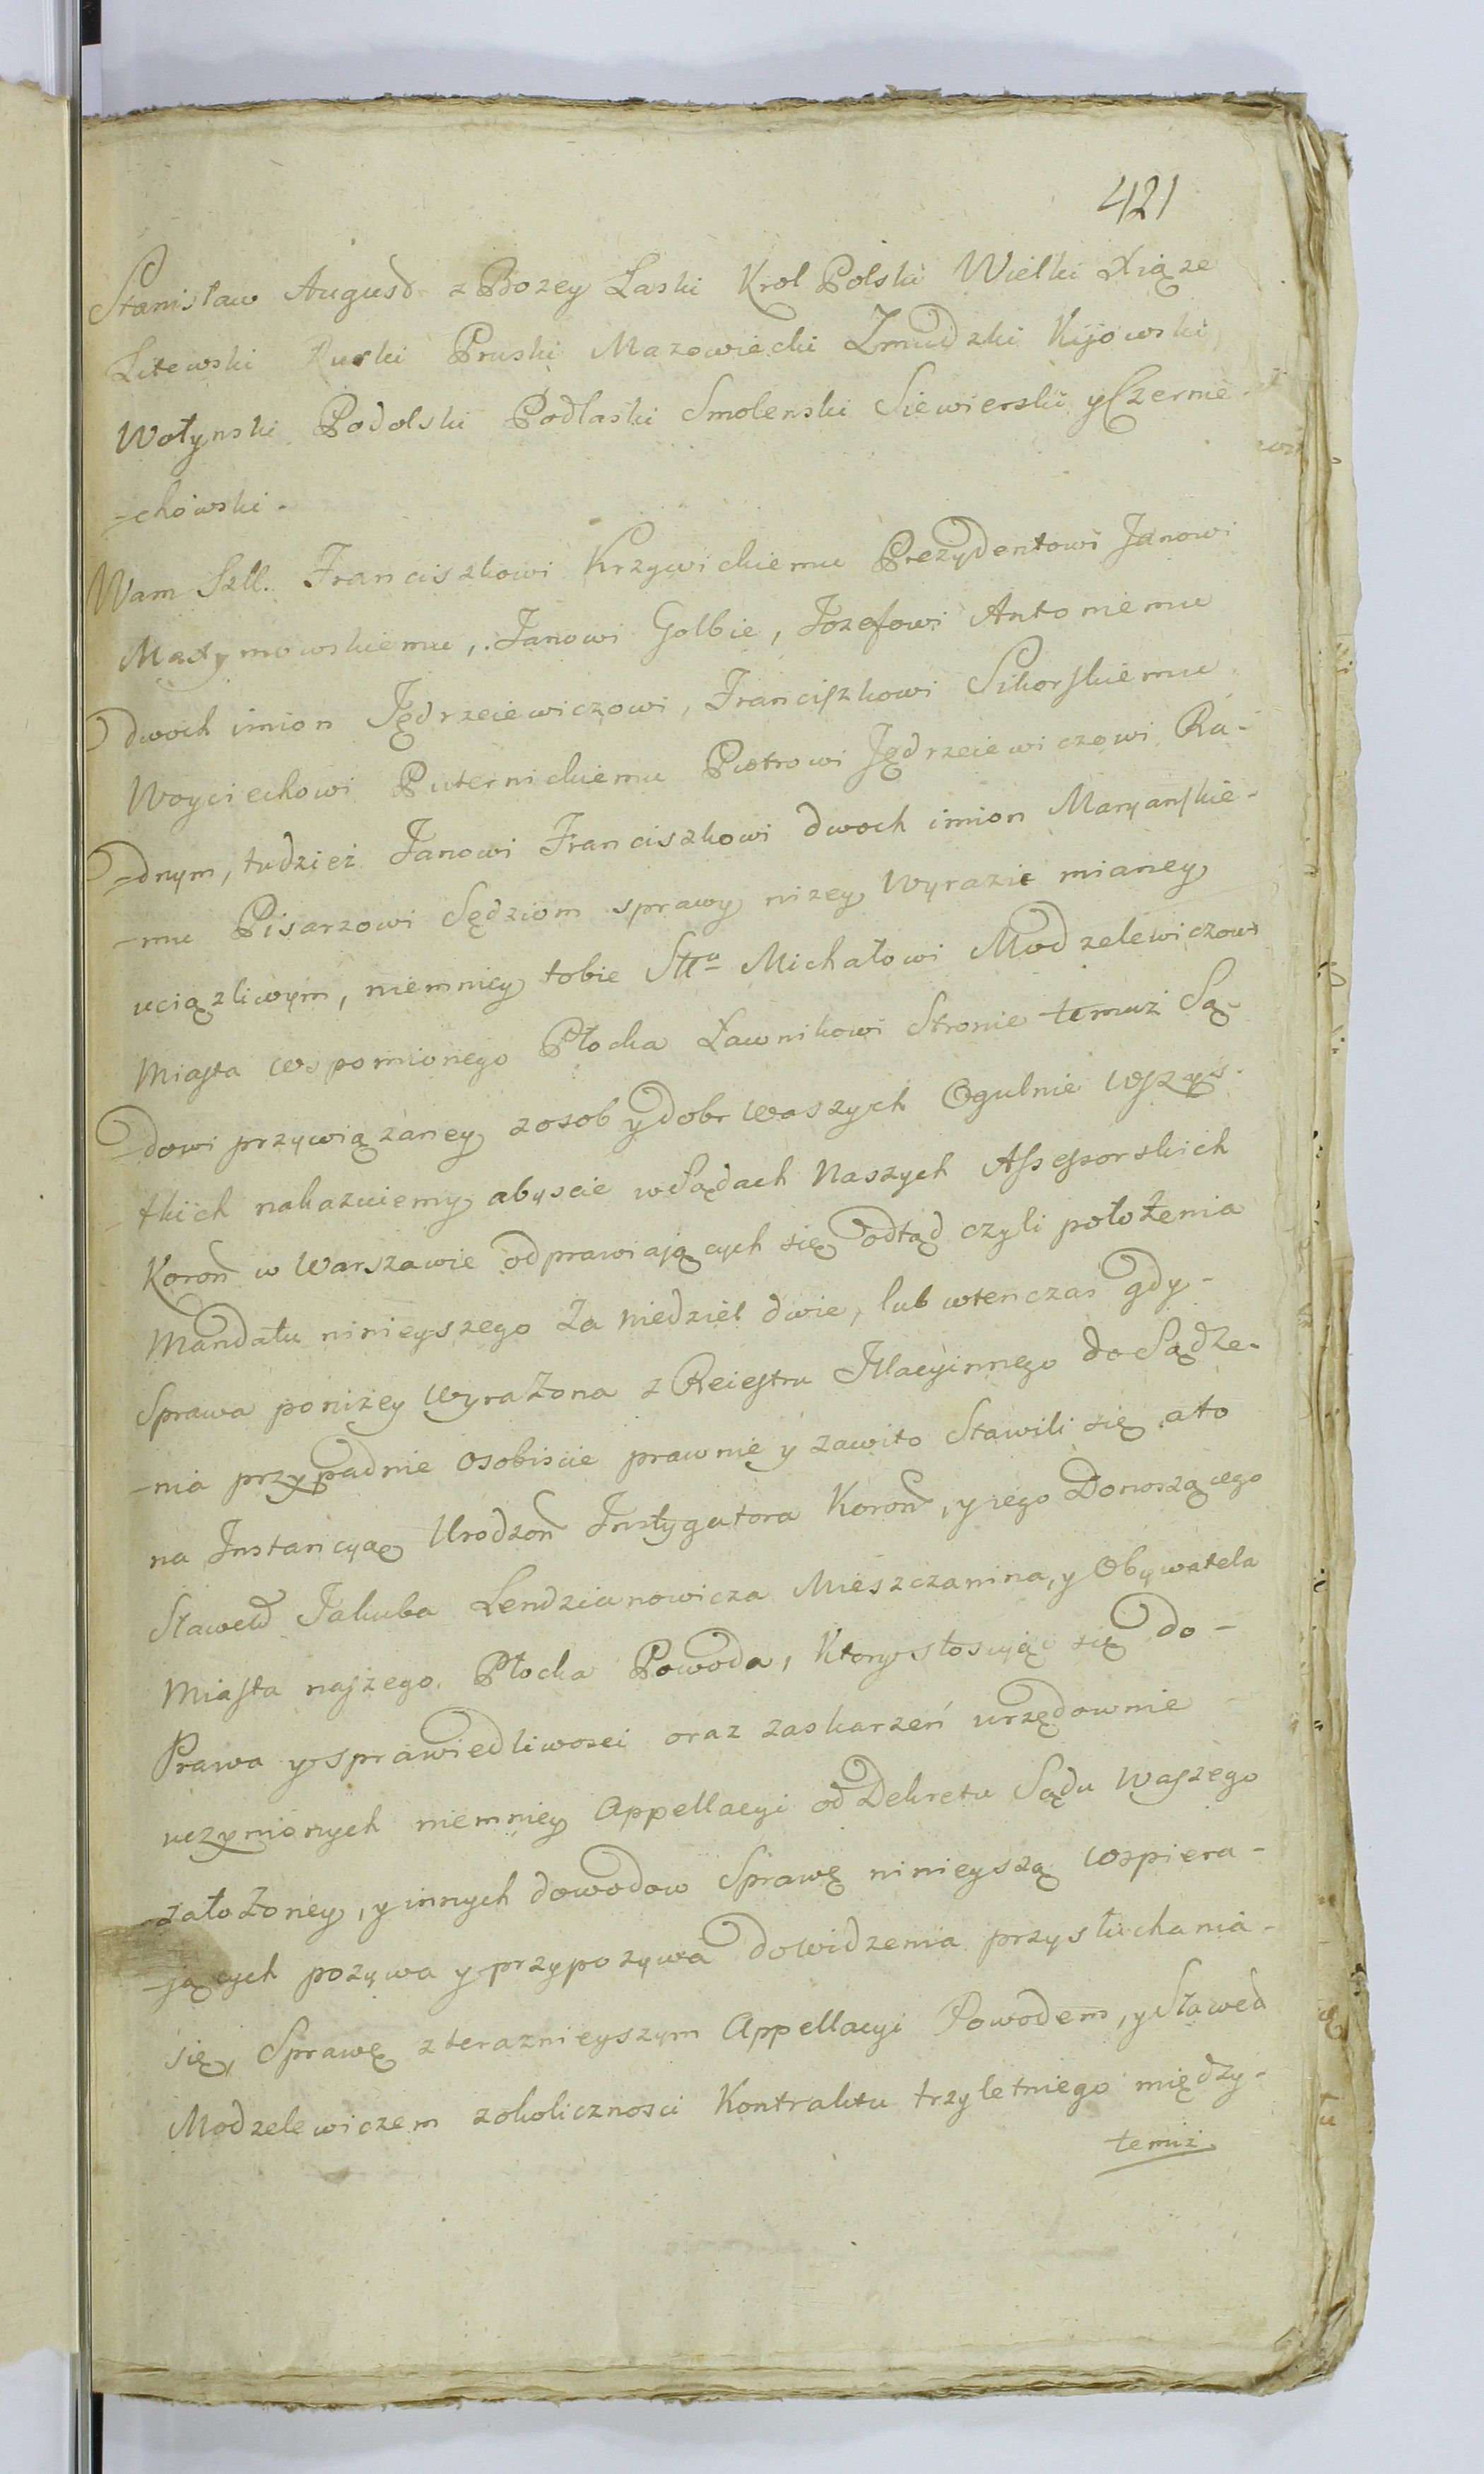 421
Stanisław August z Bozey Łaski Krol Polski Wielki Xiąze
Litewski Ruski Pruski Mazowiecki Zmudzki Kijowski
Wołynski Podolski Podlaski Smolenski Siewierski y Czernie-
-chowski.
Wam Szll. Franciszkowi Krzywickiemu Prezydentowi Janowi
Maxymowskiemu, Janowi Golbie, Jozefowi Antoniemu
dwoch imion Jędrzeiewiczowi, Franciszkowi Sikorskiemu
Woyciechowi Puternickiemu Piotrowi Jędrzeiewiczowi Ra-
-dnym, tudzież Janowi Franciszkowi dwoch imion Maryanskie-
-mu Pisarzowi Sędziom sprawy nizey wyrazić mianey
uciązliwym, niemniey tobie Michałowi Modzelewiczowi
Miasta wspomionego Płocka Ławnikowi Stronie temuz Są-
-dowi przywiązaney z osob y dobr waszych Ogulnie wszys-
-tkich nakazuiemy abyscie w Sądach Naszych Assessorskich
Koron w Warszawie odprawiaiących się odtąd czyli położenia
Mandatu ninieyszego Za niedziel dwie, lub wtenczas gdy-
Sprawa poniżey wyrażona z Reiestru Illacyinnego do Sądze-
-nia przypadnie osobiscie prawnie y zawito Stawili się ato
na Instancyą Urodzon Instygatora Koron, y iego Donoszącego
Sławetd Jakuba Lendzianowicza Mieszczanina, y Obywatela
Miasta naszego Płocka Powoda, Ktory stosuiąc się do-
Prawa y sprawiedliwosci oraz zaskarzeń urzędownie
uczynionych niemniey Appellacyi od Dekretu Sądu Waszego
założoney, y innych dowodow Sprawę ninieyszą wspiera-
-jących pozywa y przypozywa do widzenia przysłuchania-
się, Sprawę z teraznieyszym Appellacyi Powodem, y Sławetd
Modzelewiczem z okolicznosci Kontraktu trzyletniego między-
temiż